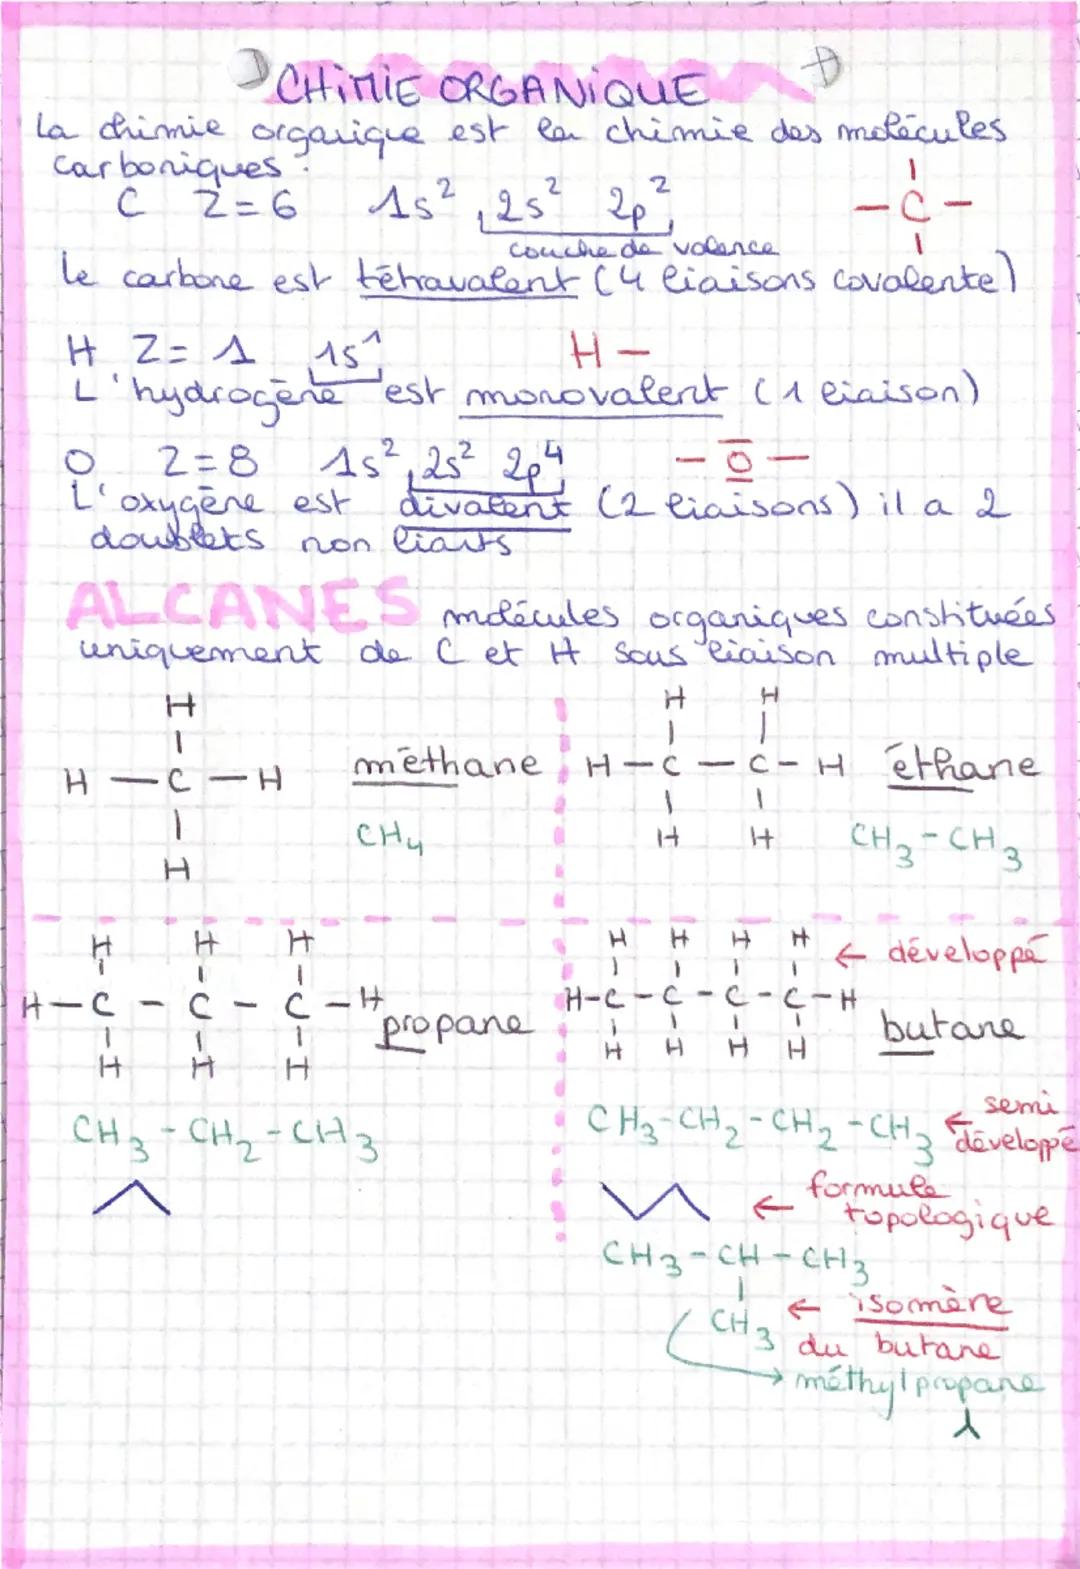 CHiMiE ORGANiQUE
La chimie organique est la chimie des molécules
carboniques :
C Z=6 1s² 2s² 2p²
couche de valence
- C -
Le carbone est tétravalent (4 liaisons covalente)
H Z=1 1s¹ H -
L'hydrogène est monovalent (1 liaison)
O Z=8 1s² 2s² 2p⁴ - O -
L'oxygène est divalent (2 liaisons) il a 2
doublets non liants
ALCANES molécules organiques constituées
uniquement de C et H sans liaison multiple
H
H - C - H
H
méthane
CH₄
H H
H - C - C - H
H H
éthane
CH₃ - CH₃
H H H
H - C - C - C - H
H H H
propane
CH₃ - CH₂ - CH₃
H H H H ← développé
H - C - C - C - C - H
H H H H
butane
CH₃ - CH₂ - CH₂ - CH₃ ← semi
développé
← formule
topologique
CH₃ - CH - CH₃
CH₃ ← isomère
du butane
→ méthylpropane